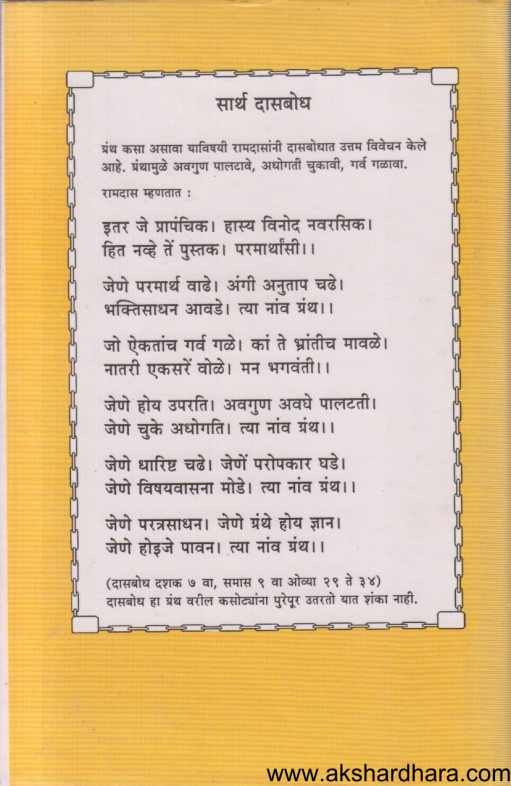 सार्थ दासबोध
ग्रंथ कसा असावा याविषयी रामदासांनी दासबोधात उत्तम विवेचन केले
आहे. ग्रंथामुळे अवगुण पालटावे, अधोगती चुकावी, गर्व गळावा.
रामदास म्हणतात :
इतर जे प्रापंचिक। हास्य विनोद नवरसिक।
हित नव्हे तें पुस्तक। परमार्थांसी।।
जेणे परमार्थ वाढे। अंगी अनुताप चढे।
भक्तिसाधन आवडे। त्या नांव ग्रंथ।।
जो ऐकतांच गर्व गळे। कां ते भ्रांतीच मावळे।
नातरी एकसरें वोळे। मन भगवंती।।
जेणे होय उपरति। अवगुण अवघे पालटती।
जेणे चुके अधोगति। त्या नांव ग्रंथ।।
जेणे धारिष्ट चढे। जेणें परोपकार घडे।
जेणे विषयवासना मोडे। त्या नांव ग्रंथ।।
जेणे परत्रसाधन। जेणे ग्रंथे होय ज्ञान।
जेणे होइजे पावन। त्या नांव ग्रंथ।।
(दासबोध दशक ७ वा, समास ९ वा ओव्या २९ ते ३४)
दासबोध हा ग्रंथ वरील कसोट्यांना पुरेपूर उतरतो यात शंका नाही.
www.akshardhara.com